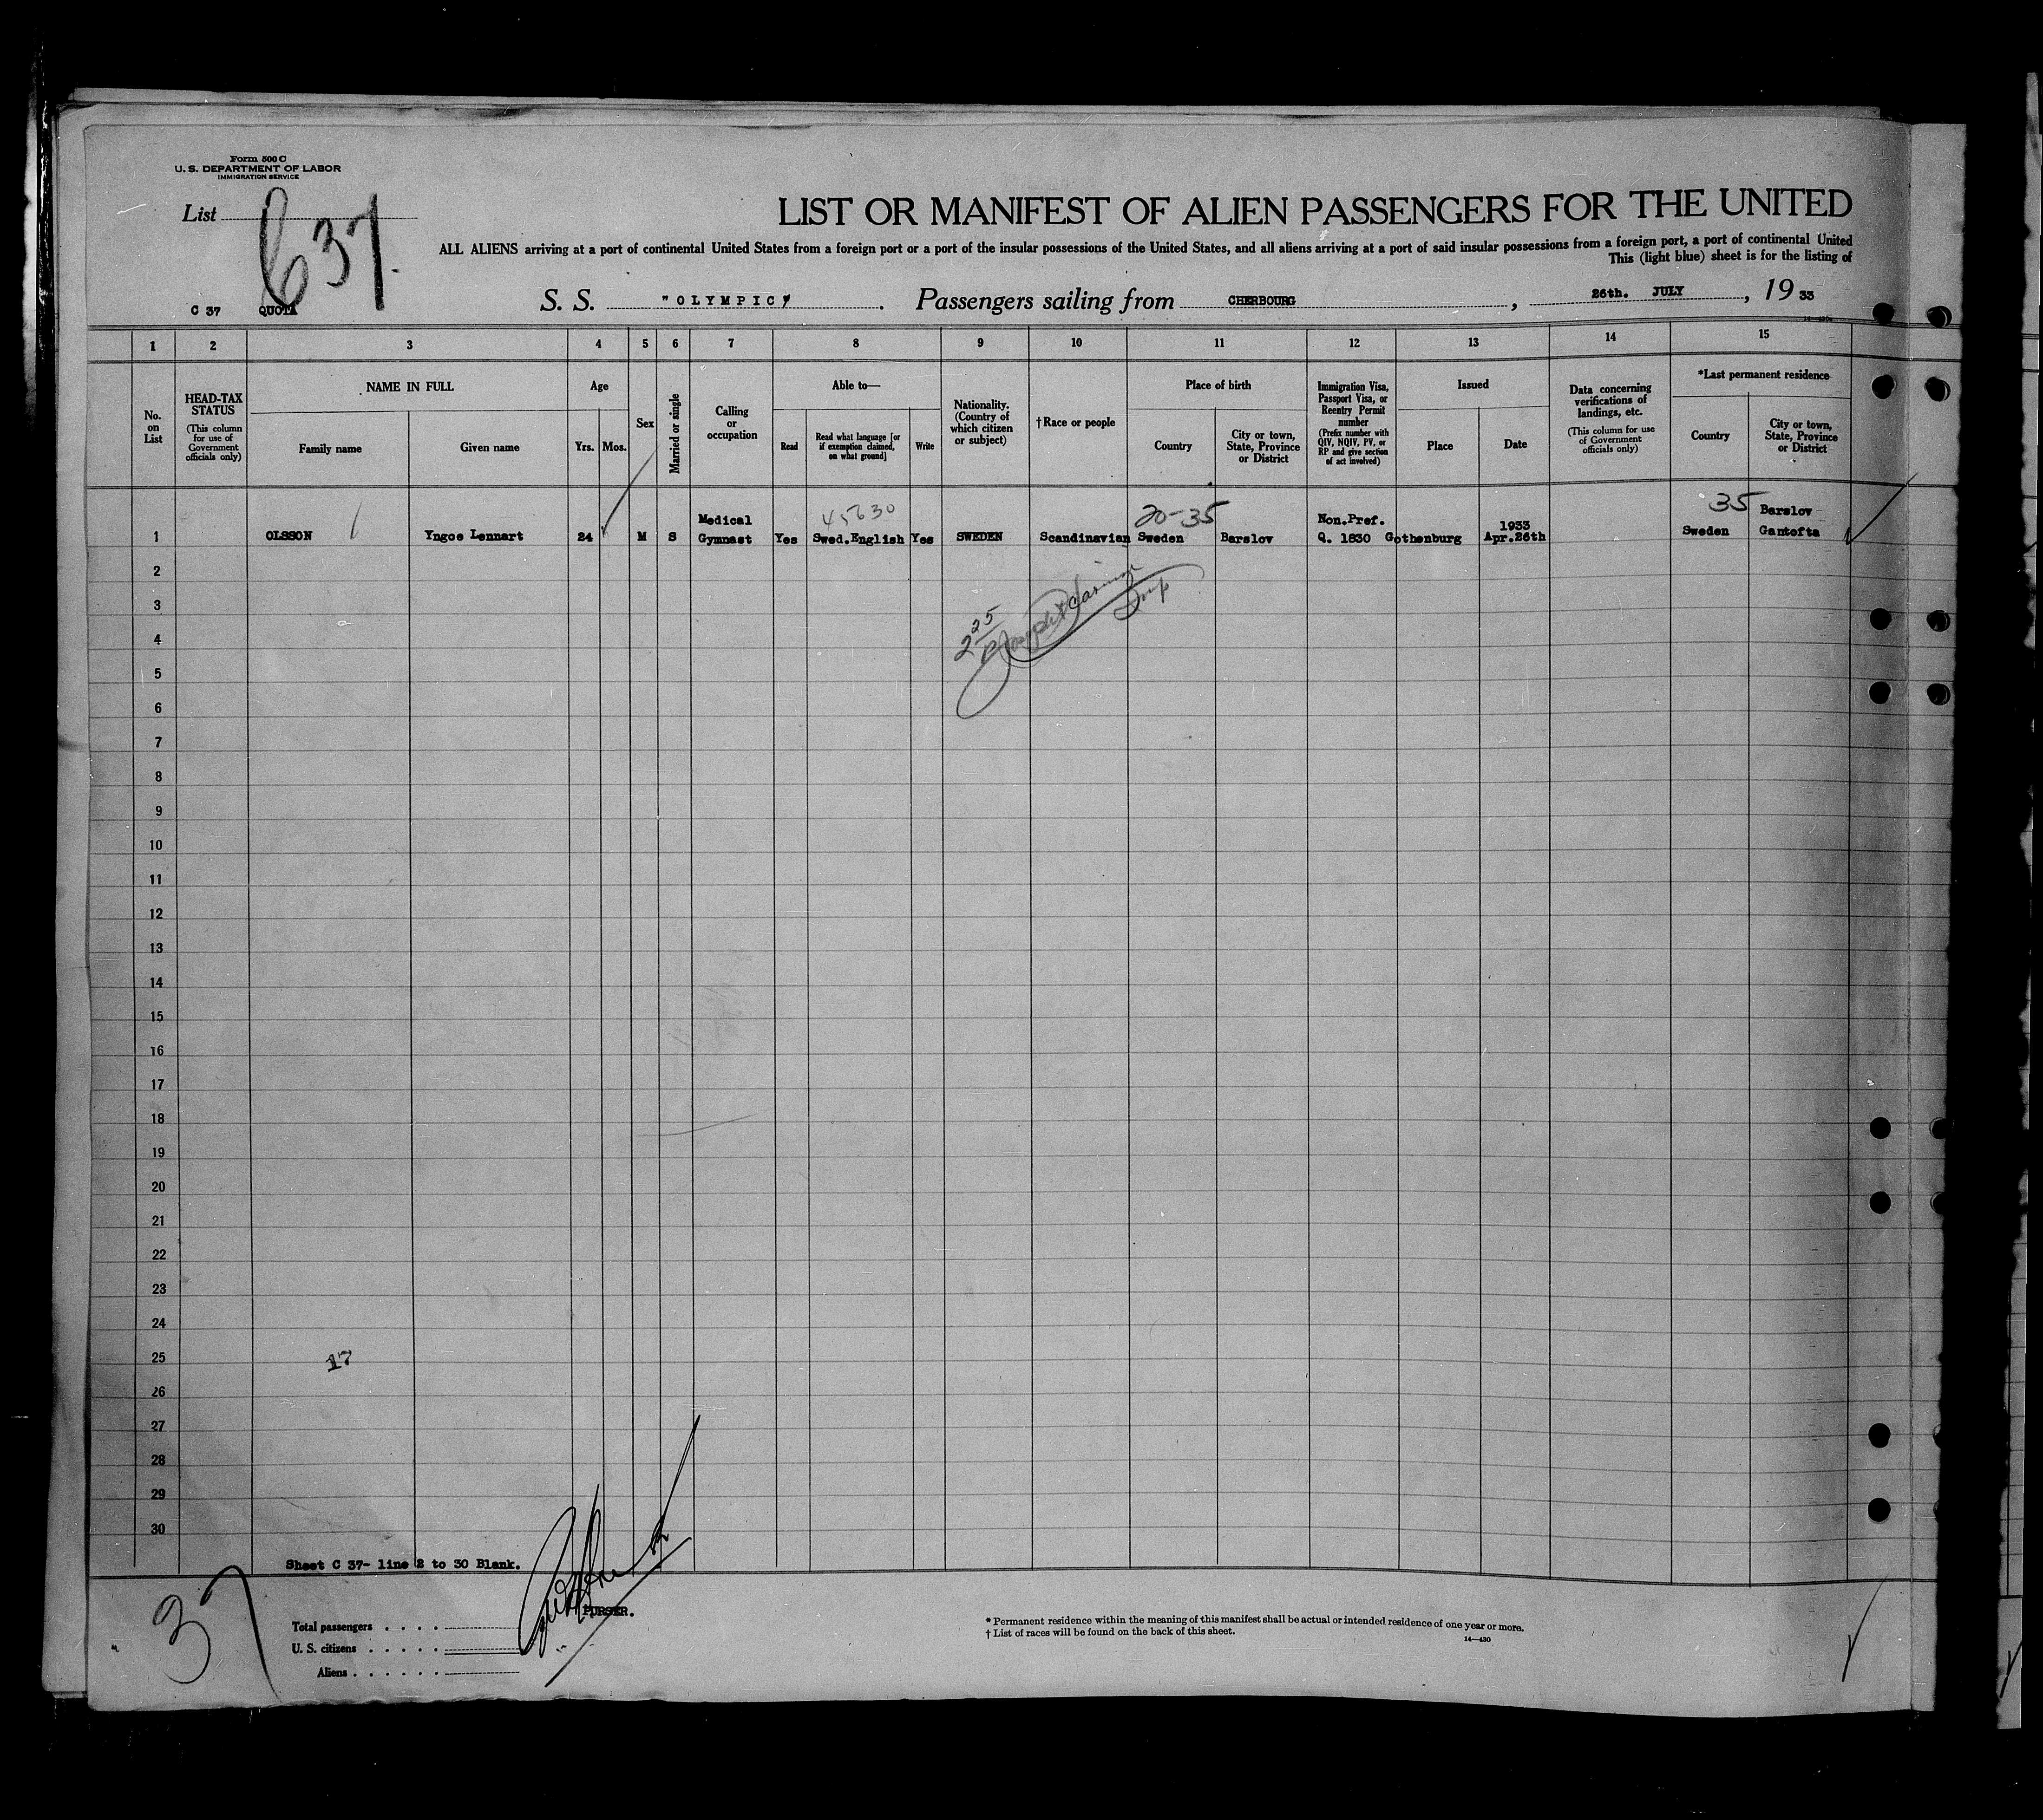 Form 500 C
U. S. DEPARTMENT OF LABOR
IMMIGRATION SERVICE
List
C 37.
LIST OR MANIFEST OF ALIEN PASSENGERS FOR THE UNITED
ALL ALIENS arriving at a port of continental United States from a foreign port or a port of the insular possessions of the United States, and all aliens arriving at a port of said insular possessions from a foreign port, a port of continental United
This (light blue) sheet is for the listing of
C 37 QUOTA
S. S. "OLYMPIC". Passengers sailing from CHERBOURG, 26th. JULY, 19 33
1 2 3 4 5 6 7 8 9 10 11 12 13 14 15
No. on List
HEAD-TAX STATUS
(This column for use of Government officials only)
NAME IN FULL
Family name
Given name
Age
Yrs.
Mos.
Sex
Married or single
Calling or occupation
Able to—
Read
Read what language [or if exemption claimed, on what ground]
Write
Nationality. (Country of which citizen or subject)
†Race or people
Place of birth
Country
City or town, State, Province or District
Immigration Visa, Passport Visa, or Reentry Permit number
(Prefix number with QIV, NQIV, PV, or RP and give section of act involved)
Issued
Place
Date
Data concerning verifications of landings, etc.
(This column for use of Government officials only)
*Last permanent residence
Country
City or town, State, Province or District
45630
20-35
35
1 OLSSON Yngoe Lennart 24 M S Medical Gymnast Yes Swed.English Yes SWEDEN Scandinavian Sweden Barslov Non.Pref. Q. 1830 Gothenburg 1933 Apr.26th Sweden Barslov Gantofta
2
3
4
225
5
6
7
8
9
10
11
12
13
14
15
16
17
18
19
20
21
22
23
24
25
17
26
27
28
29
30
Sheet C 37- line 2 to 30 Blank.
37
PURSER.
Total passengers . . . .
U. S. citizens . . . . .
Aliens . . . . . .
* Permanent residence within the meaning of this manifest shall be actual or intended residence of one year or more.
† List of races will be found on the back of this sheet.
14—430